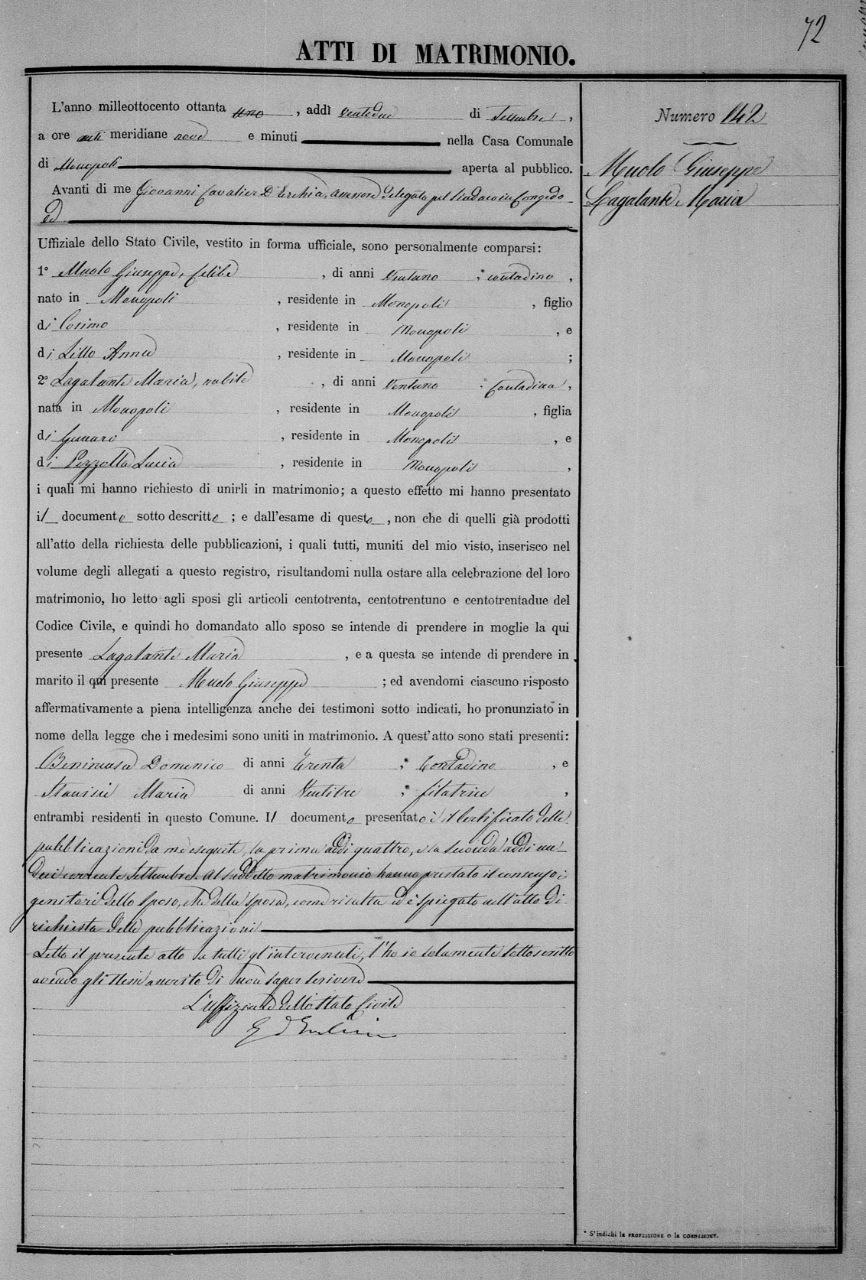 72
ATTI DI MATRIMONIO.
L'anno milleottocento ottanta uno, addì ventidue di Settembre,
a ore anti meridiane nove e minuti nella Casa Comunale
di Monopoli aperta al pubblico.
Avanti di me Giovanni Cavalier D'Erchia, assessore delegato pel Sindaco in Congedo
ed
Uffiziale dello Stato Civile, vestito in forma ufficiale, sono personalmente comparsi:
1° Muolo Giuseppe, celibe, di anni ventuno * contadino,
nato in Monopoli, residente in Monopoli, figlio
di Cosimo, residente in Monopoli, e
di Lillo Anna, residente in Monopoli;
2° Lagalante Maria, nubile, di anni ventuno * Contadina,
nata in Monopoli, residente in Monopoli, figlia
di Gennaro, residente in Monopoli, e
di Pezzolla Lucia, residente in Monopoli,
i quali mi hanno richiesto di unirli in matrimonio; a questo effetto mi hanno presentato
il documento sotto descritto; e dall'esame di questo, non che di quelli già prodotti
all'atto della richiesta delle pubblicazioni, i quali tutti, muniti del mio visto, inserisco nel
volume degli allegati a questo registro, risultandomi nulla ostare alla celebrazione del loro
matrimonio, ho letto agli sposi gli articoli centotrenta, centotrentuno e centotrentadue del
Codice Civile, e quindi ho domandato allo sposo se intende di prendere in moglie la qui
presente Lagalante Maria, e a questa se intende di prendere in
marito il qui presente Muolo Giuseppe; ed avendomi ciascuno risposto
affermativamente a piena intelligenza anche dei testimoni sotto indicati, ho pronunziato in
nome della legge che i medesimi sono uniti in matrimonio. A quest'atto sono stati presenti:
Domenico di anni trenta * Contadino, e
Maria di anni ventitre * filatrice,
entrambi residenti in questo Comune. Il documento presentato è il certificato delle
pubblicazioni da me eseguite, la prima addì quattro, e la seconda addì un-
dici corrente Settembre. Al suddetto matrimonio hanno prestato il consenso i
genitori dello sposo, che della sposa, come risulta ed è spiegato nell'atto di
richiesta delle pubblicazioni
Letto il presente atto a tutti gl'intervenuti, l'ho io solamente sottoscritto
avendo gli stessi asserito di non saper scrivere
L'uffiziale dello Stato Civile
G d'Erchia
Numero 142
Muolo Giuseppe
Lagalante Maria
* S'indichi la PROFESSIONE o la CONDIZIONE.